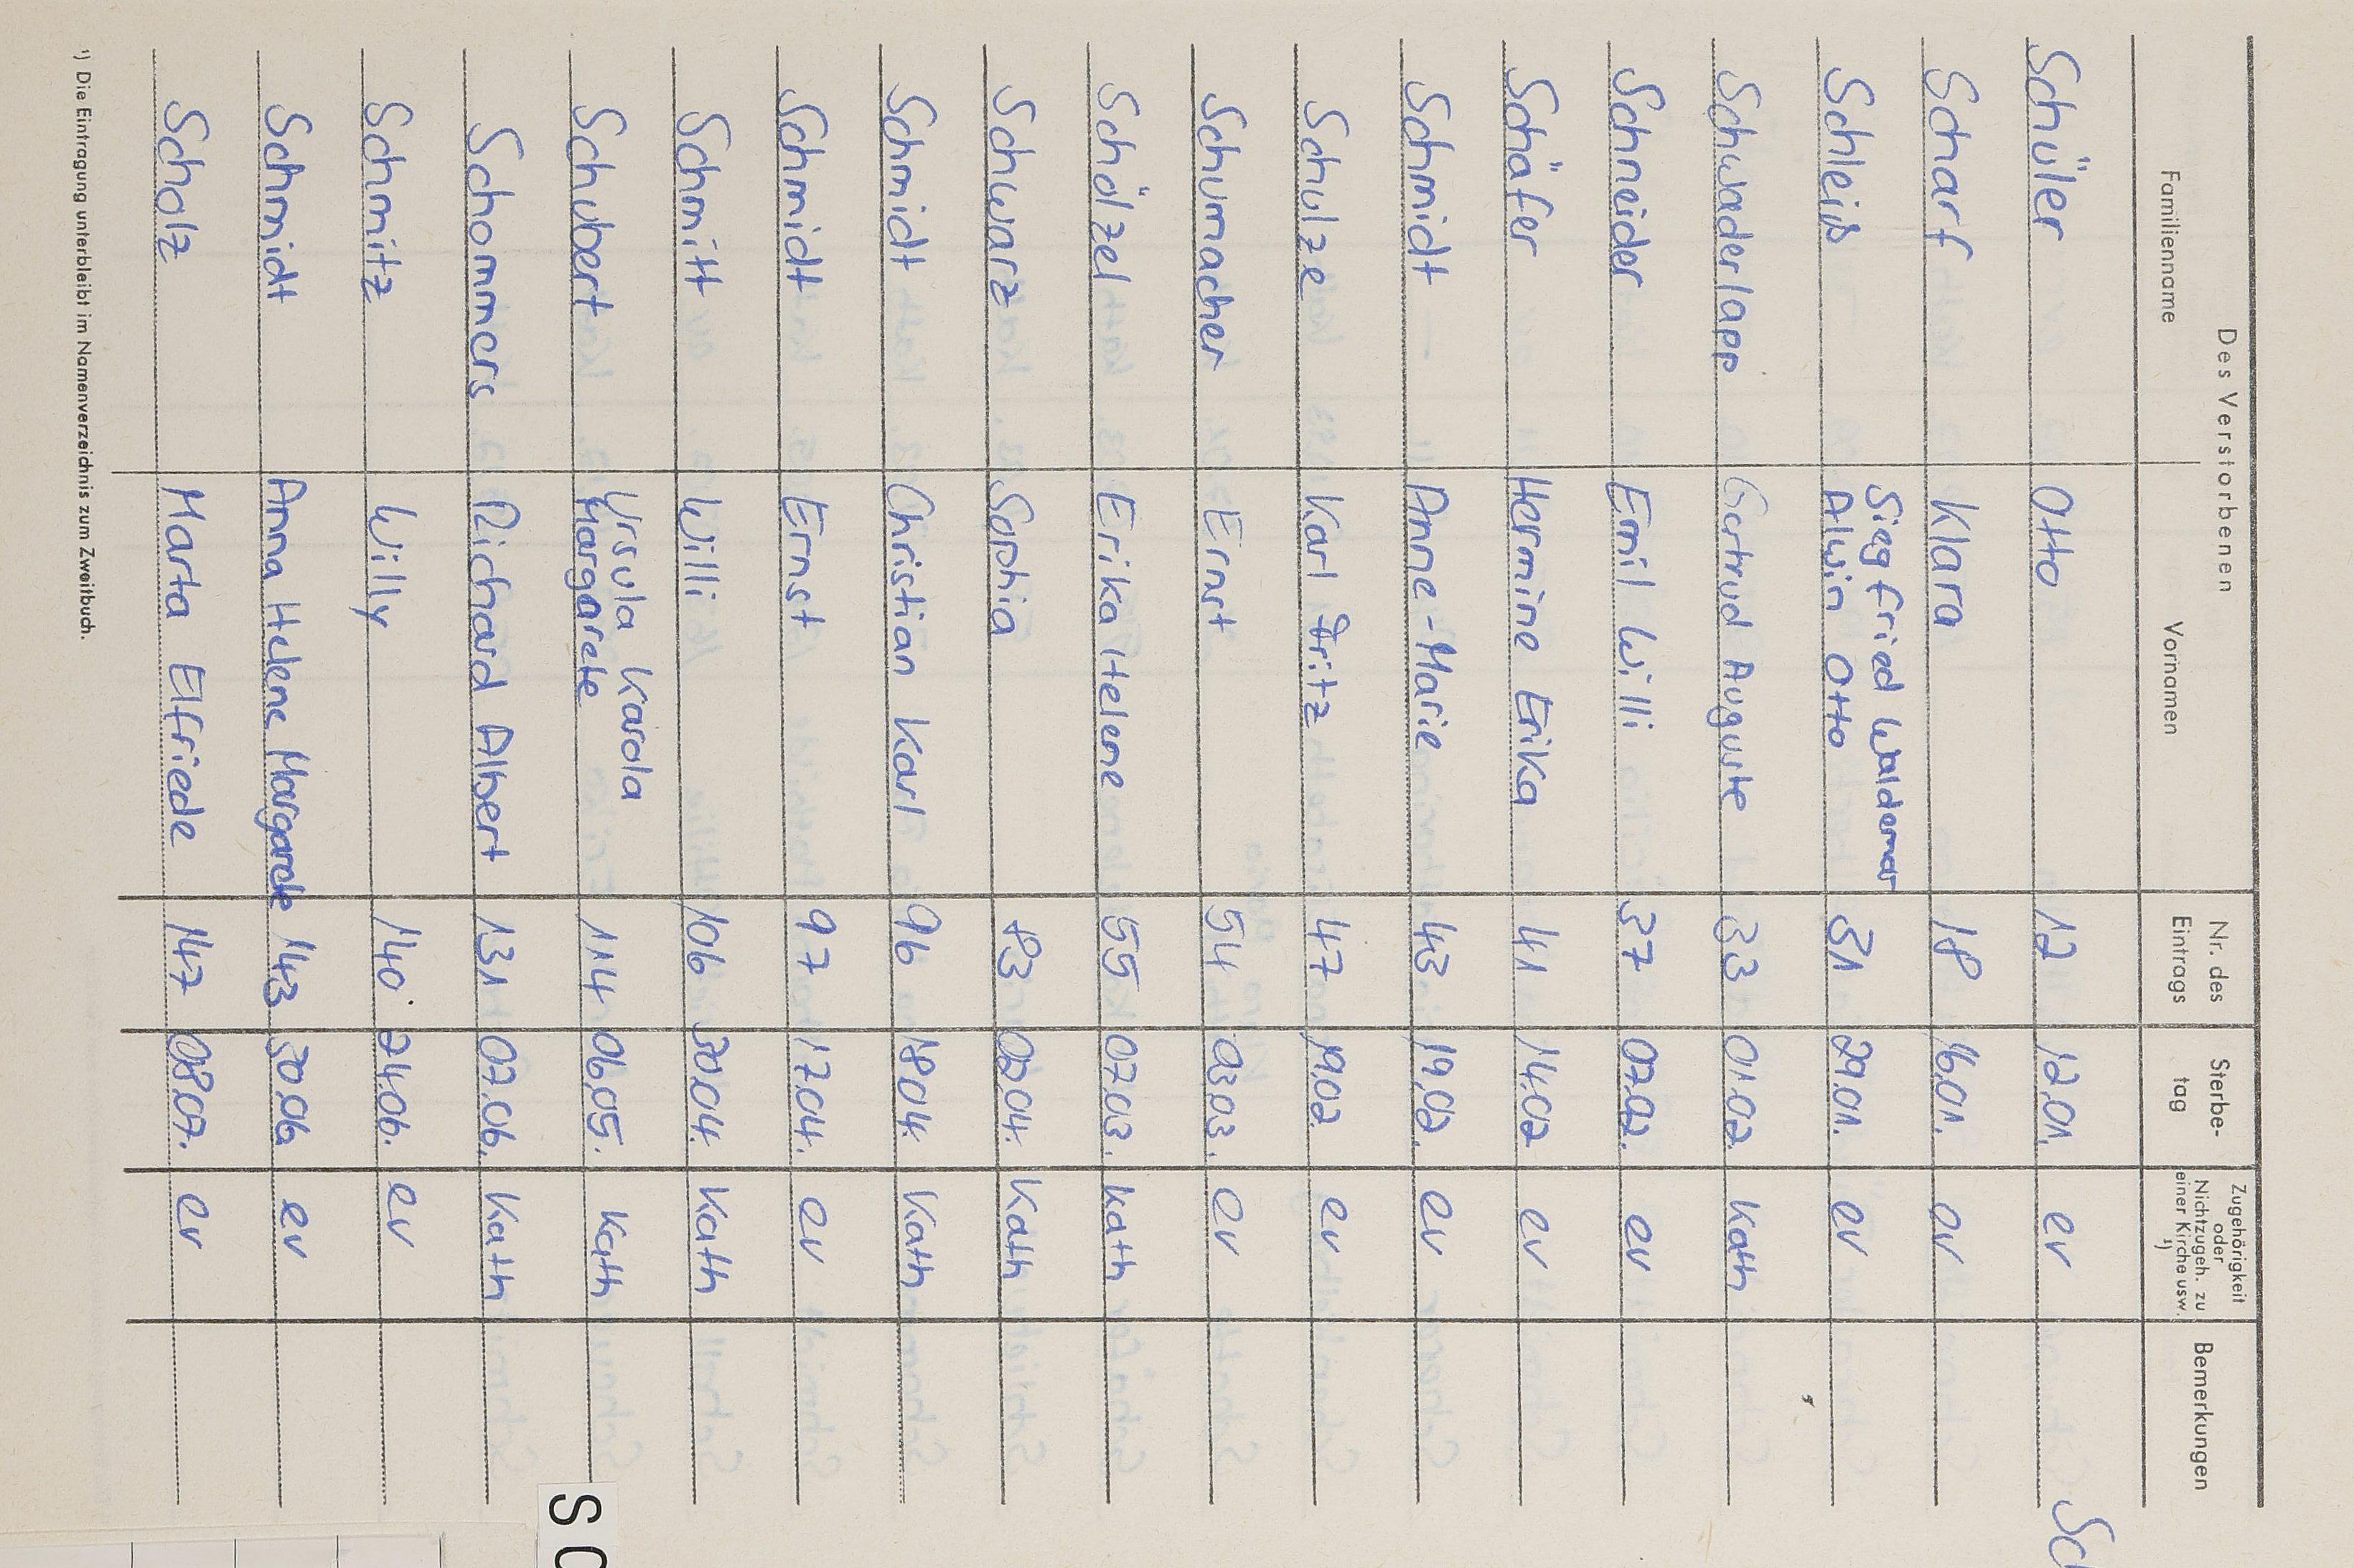 Des Verstorbenen
Familienname Vornamen Nr. des Eintrags Sterbe-tag Zugehörigkeit oder Nichtzugeh. zu einer Kirche usw. ¹) Bemerkungen
Sch
Schüler Otto 12 12.01. ev
Scharf Klara 18 16.01. ev
Siegfried Waldemar
Schleiß Alwin Otto 31 29.01. ev
Schwaderlapp Gertrud Auguste 33 01.02. Kath
Schneider Emil Willi 37 07.02. ev
Schäfer Hermine Erika 41 14.02 ev
Schmidt Anne-Marie 43 19.02. ev
Schulze Karl Fritz 47 19.02. ev
Schumacher Ernst 54 03.03. ev
Schölzel Erika Helene 55 07.03. Kath
Schwarz Sophia 83 02.04. Kath
Schmidt Christian Karl 96 18.04. Kath
Schmidt Ernst 97 17.04. ev
Schmitt Willi 106 30.04. Kath
Ursula Karola
Schubert Margarete 114 06.05. Kath
Schommers Richard Albert 131 07.06. Kath
Schmitz Willy 140 24.06. ev
Schmidt Anna Helene Margarete 143 30.06 ev
Scholz Marta Elfriede 147 08.07. ev
¹) Die Eintragung unterbleibt im Namenverzeichnis zum Zweitbuch.
S